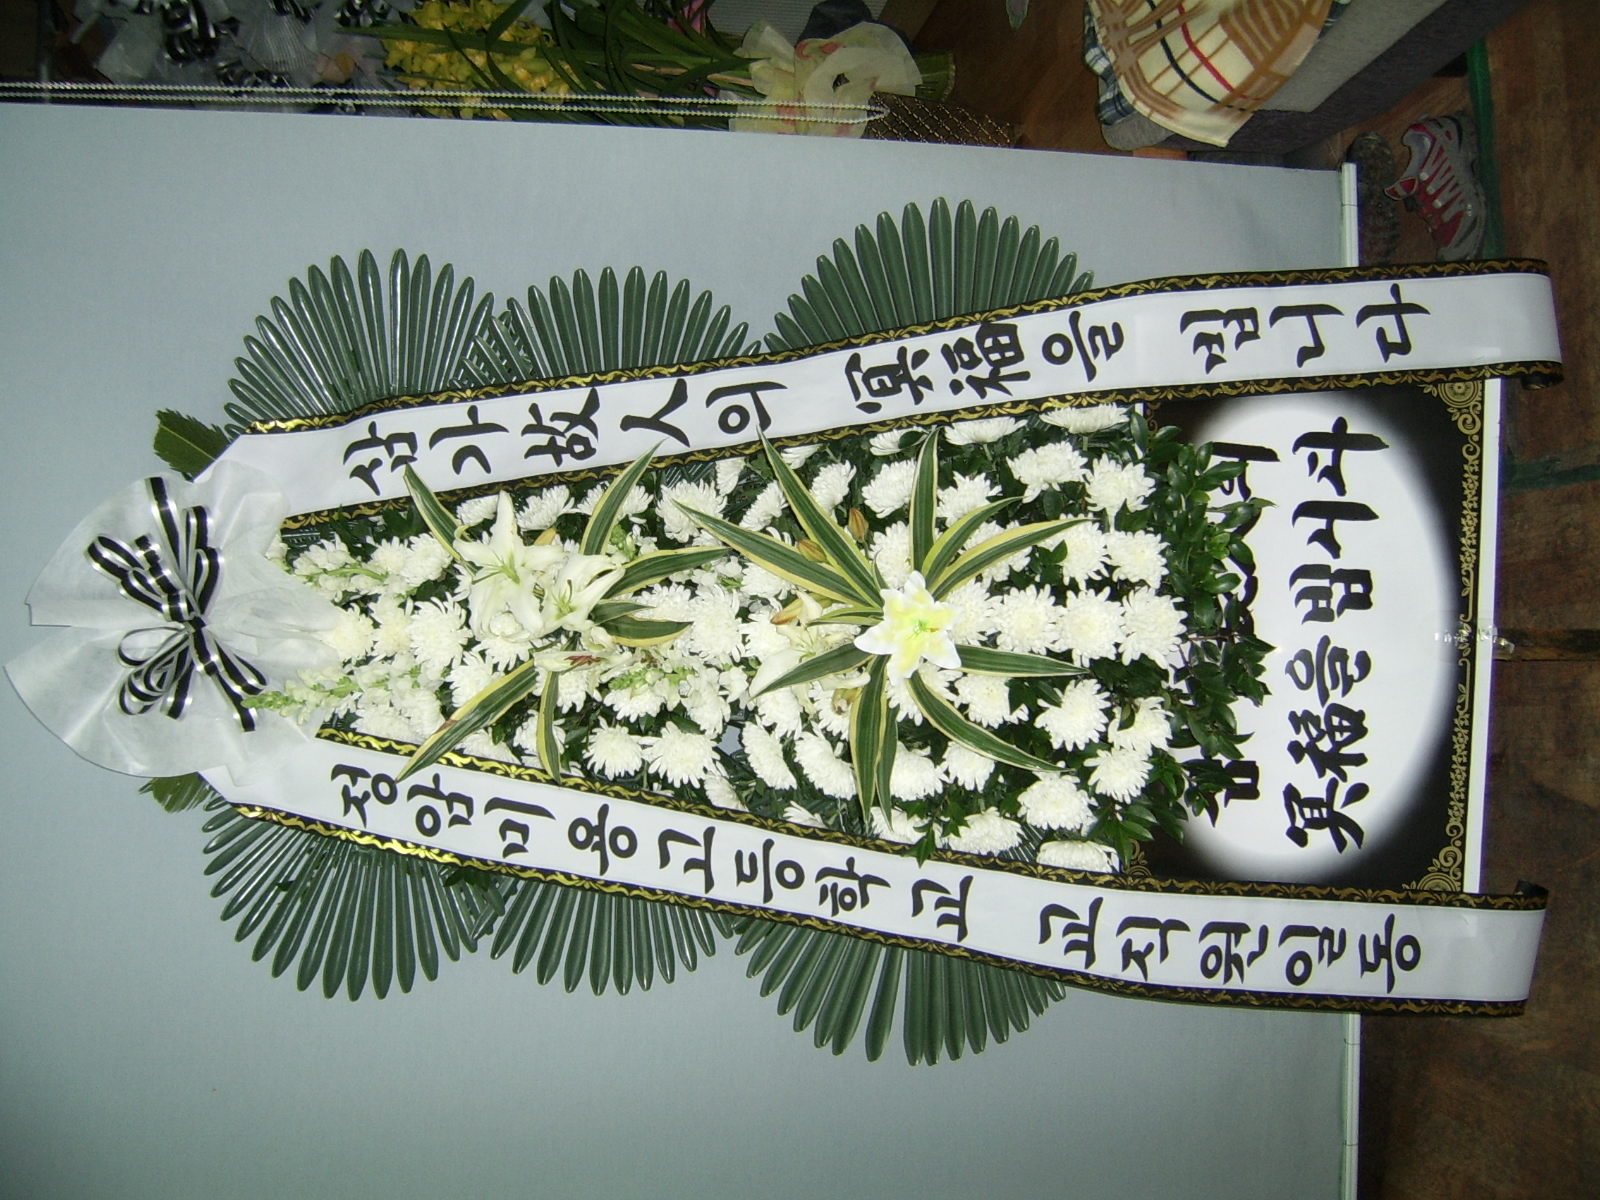 삼가 故人의 冥福을 빕니다
정암미용고등학교 교직원일동
冥福을 빕니다